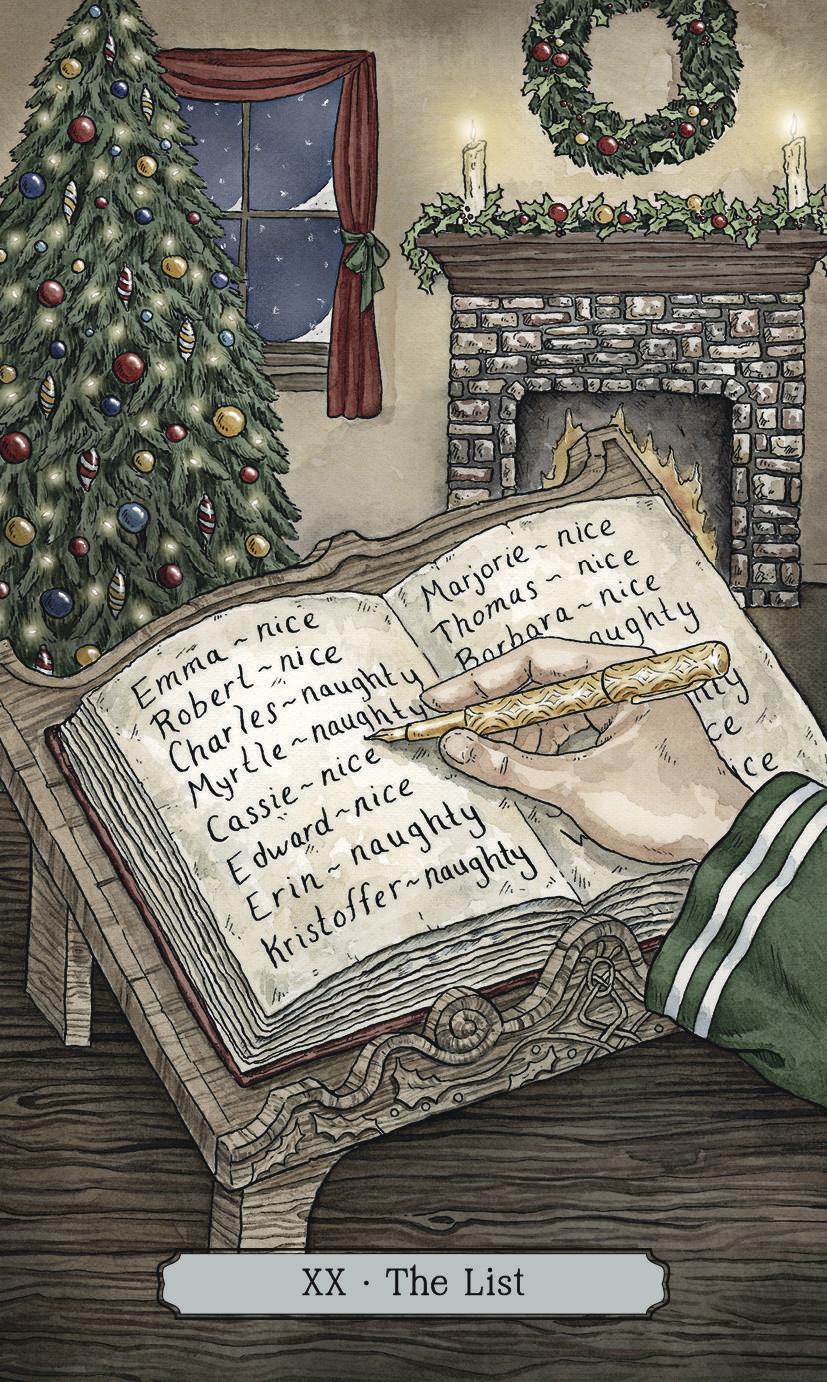 Emma ~ nice
Robert ~ nice
Charles ~ naughty
Myrtle ~ naughty
Cassie ~ nice
Edward ~ nice
Erin ~ naughty
Kristoffer ~ naughty
Marjorie ~ nice
Thomas ~ nice
Barbara ~ nice
XX · The List